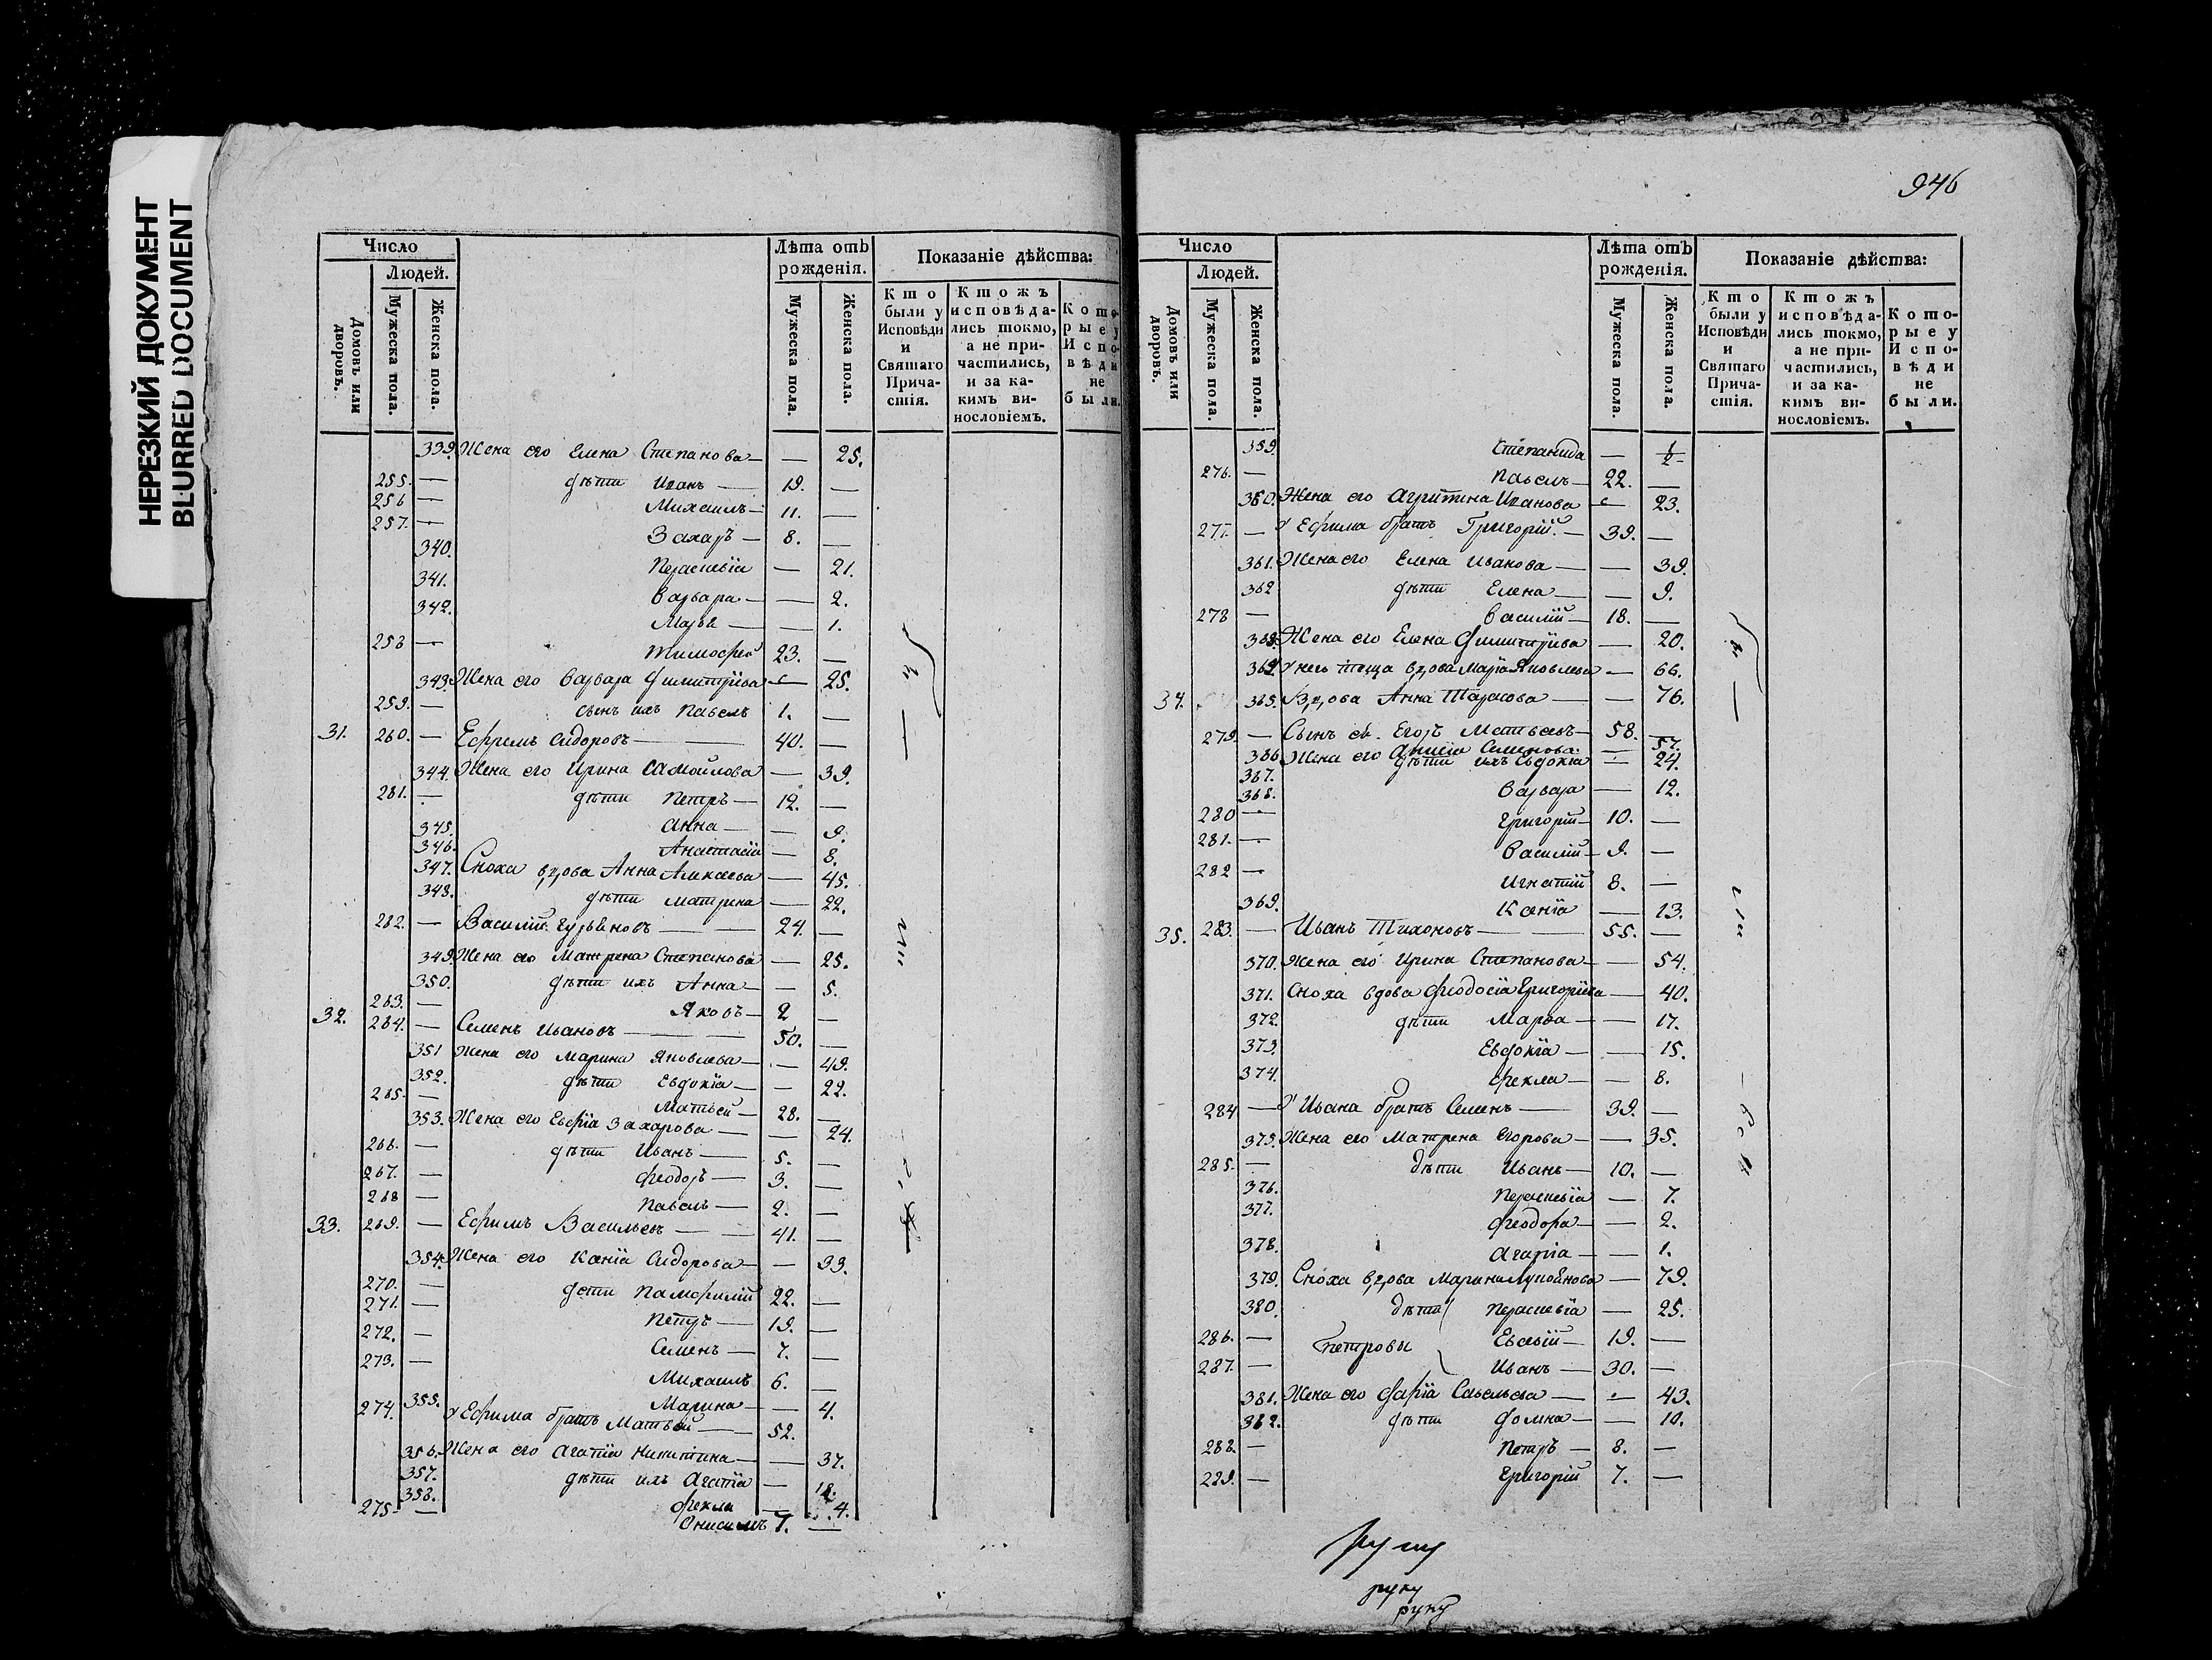 НЕРЕЗКИЙ ДОКУМЕНТ
BLURRED DOCUMENT
Число
Людей.
Домовъ или дворовъ.
Мужеска пола.
Женска пола.
Лѣта отъ рожденія.
Мужеска пола.
Женска пола.
Показаніе дѣйства:
Кто были у Исповѣди и Святаго Причастія.
Ктожъ исповѣдались токмо, а не причастились, и за какимъ винословіемъ.
Которые у Исповѣди не были.
339. Жена его Елена Степанова — — 25.
255. — дѣти Иванъ — 19. —
256 — Михаилъ — 11. —
257. — Захаръ — 8. —
340. Параскевіа — 21.
341. Варвара — — 2.
342. Марья — — 1.
258 — Тимофей 23. —
343. Жена его Варвара Димитріева — 25.
259. — сынъ ихъ Павелъ 1. —
31. 260. — Ефремъ Сидоровъ — 40. —
344. Жена его Ирина Самойлова — 39.
261. — дѣти Петръ — 12. —
345. Анна — — 9.
346. Анастасія — 8.
347. Сноха вдова Анна Алексеева — 45.
348. дѣти Матрена — 22.
262. — Василій Гурьяновъ — 24. —
349. Жена его Матрена Степанова — 25.
350. дѣти ихъ Анна — — 5.
263. — Яковъ — 2 —
32. 264. — Семенъ Ивановъ — 50. —
351 Жена его Марина Яковлева — — 49.
352. дѣти Евдокіа — — 22.
265. — Матвей — 28. —
353. Жена его Захарова — — 24.
266. — дѣти Иванъ — 5. —
267. — Феодоръ — 3. —
268 — Павелъ — 2. —
33. 269. — Ефимъ Васильевъ — 41. —
354. Жена его Ксеніа Сидорова — — 39.
270. — дети Памфилій 22. —
271. — Петръ — 19. —
272. — Семенъ — 7. —
273. — Михаилъ 6. —
355. Марина — — 4.
274. У Ефима братъ Матвей — 52.
356. Жена его Агапіа Никитина — — 37.
357. дѣти ихъ Агапіа — 18.
358. Фекла — 4.
275 — Онисимъ 7. —
946
Число
Людей.
Домовъ или дворовъ.
Мужеска пола.
Женска пола.
Лѣта отъ рожденія.
Мужеска пола.
Женска пола.
Показаніе дѣйства:
Кто были у Исповѣди и Святаго Причастія.
Ктожъ исповѣдались токмо, а не причастились, и за какимъ винословіемъ.
Которые у Исповѣди не были.
359. Степанида — 1/2
276. — Павелъ — 22. —
360. Жена его Агрипина Иванова — 23.
277. — У Ефима братъ Григорій — 39. —
361. Жена его Елена Иванова — — 39.
362 дѣти Елена — — 9.
278 — Василій — 18. —
363. Жена его Елена Димитріева — 20.
364. У него теща вдова Маріа Яковлева — 66.
34. 365. Вдова Анна Тарасова — — 76.
279. — Сынъ ея Егоръ Матвеевъ — 58. —
366. Жена его Семенова — 57.
367. дѣти ихъ Евдокіа — 24.
368. Варвара — 12.
280 — Григорій — 10. —
281. — Василій — 9. —
282 — Игнатій 8. —
369. Ксеніа — 13.
35. 283. — Иванъ Тихоновъ — 55. —
370. Жена его Ирина Степанова — — 54.
371. Сноха вдова Феодосіа Григоріева — 40.
372. дѣти Марѳа — — 17.
373. Евдокіа — — 15.
374. Фекла — — 8.
284 — У Ивана братъ Семенъ — 39. —
375. Жена его Матрена Егорова — — 35.
285. — дѣти Иванъ — 10. —
376. Параскевіа — 7.
377. Феодора — — 2.
378. Агапіа — — 1.
379. Сноха вдова Марина — 79.
380. дѣти Параскевіа — 25.
286. — Петровы Евсевій — 19. —
287. — Иванъ — 30. —
381. Жена его Даріа Савельева — — 43.
382. дѣти Домна — — 10.
288. — Петръ — 8. —
289. — Григорій 7. —
руку
руку
руку